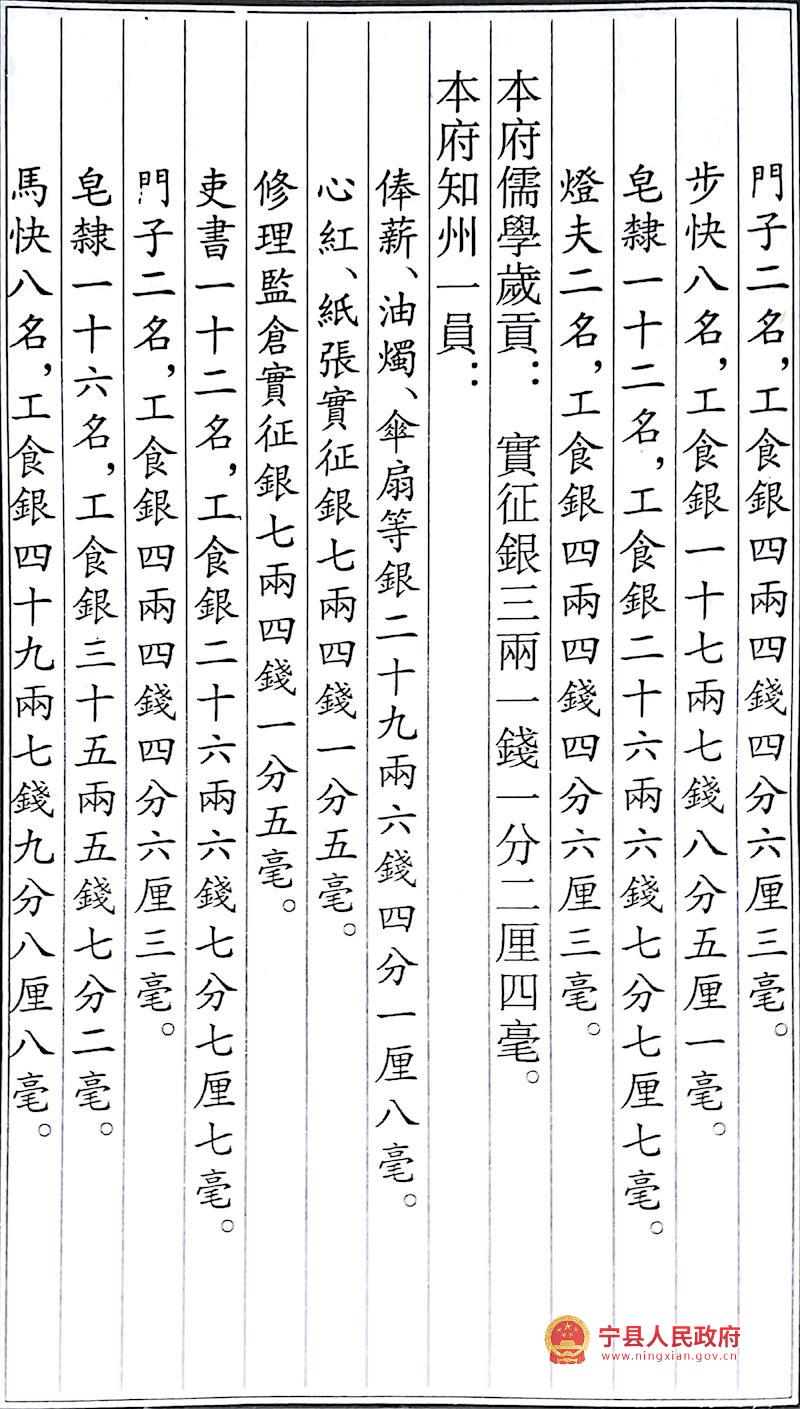 門子二名，工食銀四兩四錢四分六厘三毫。
步快八名，工食銀一十七兩七錢八分五厘一毫。
皂隸一十二名，工食銀二十六兩六錢七分七厘七毫。
燈夫二名，工食銀四兩四錢四分六厘三毫。
本府儒學歲貢： 實征銀三兩一錢一分二厘四毫。
本府知州一員：
俸薪、油燭、傘扇等銀二十九兩六錢四分一厘八毫。
心紅、紙張實征銀七兩四錢一分五毫。
修理監倉實征銀七兩四錢一分五毫。
吏書一十二名，工食銀二十六兩六錢七分七厘七毫。
門子二名，工食銀四兩四錢四分六厘三毫。
皂隸一十六名，工食銀三十五兩五錢七分二毫。
馬快八名，工食銀四十九兩七錢九分八厘八毫。
宁县人民政府
www.ningxian.gov.cn